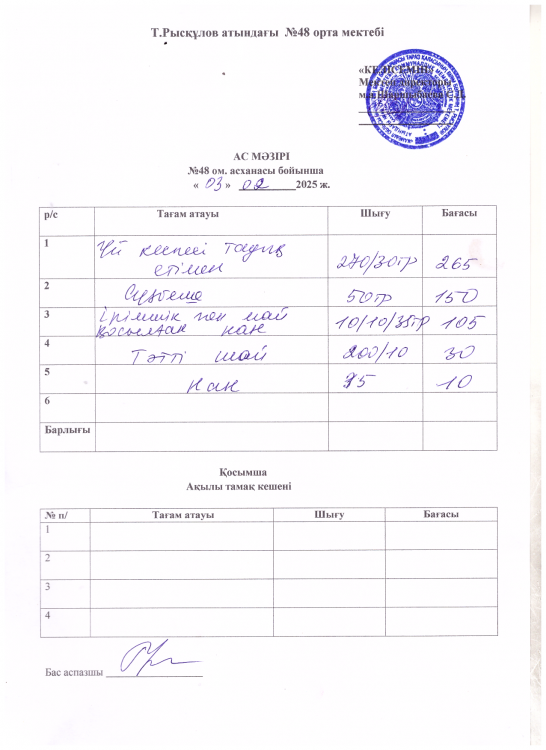 Т.Рысқұлов атындағы №48 орта мектебі
«КЕЛІСЕМІН»
Мектеп директоры
АС МӘЗІРІ
№48 ом. асханасы бойынша
« 03 » 02 2025 ж.
р/с Тағам атауы Шығу Бағасы
1 Үй кеспесі тауық
етімен 270/30гр 265
2 Сүзбеше 50гр 150
3 Ірімшік пен май
қосылған нан 10/10/35гр 105
4 Тәтті шай 200/10 30
5 Нан 75 10
6
Барлығы
Қосымша
Ақылы тамақ кешені
№ п/ Тағам атауы Шығу Бағасы
1
2
3
4
Бас аспазшы